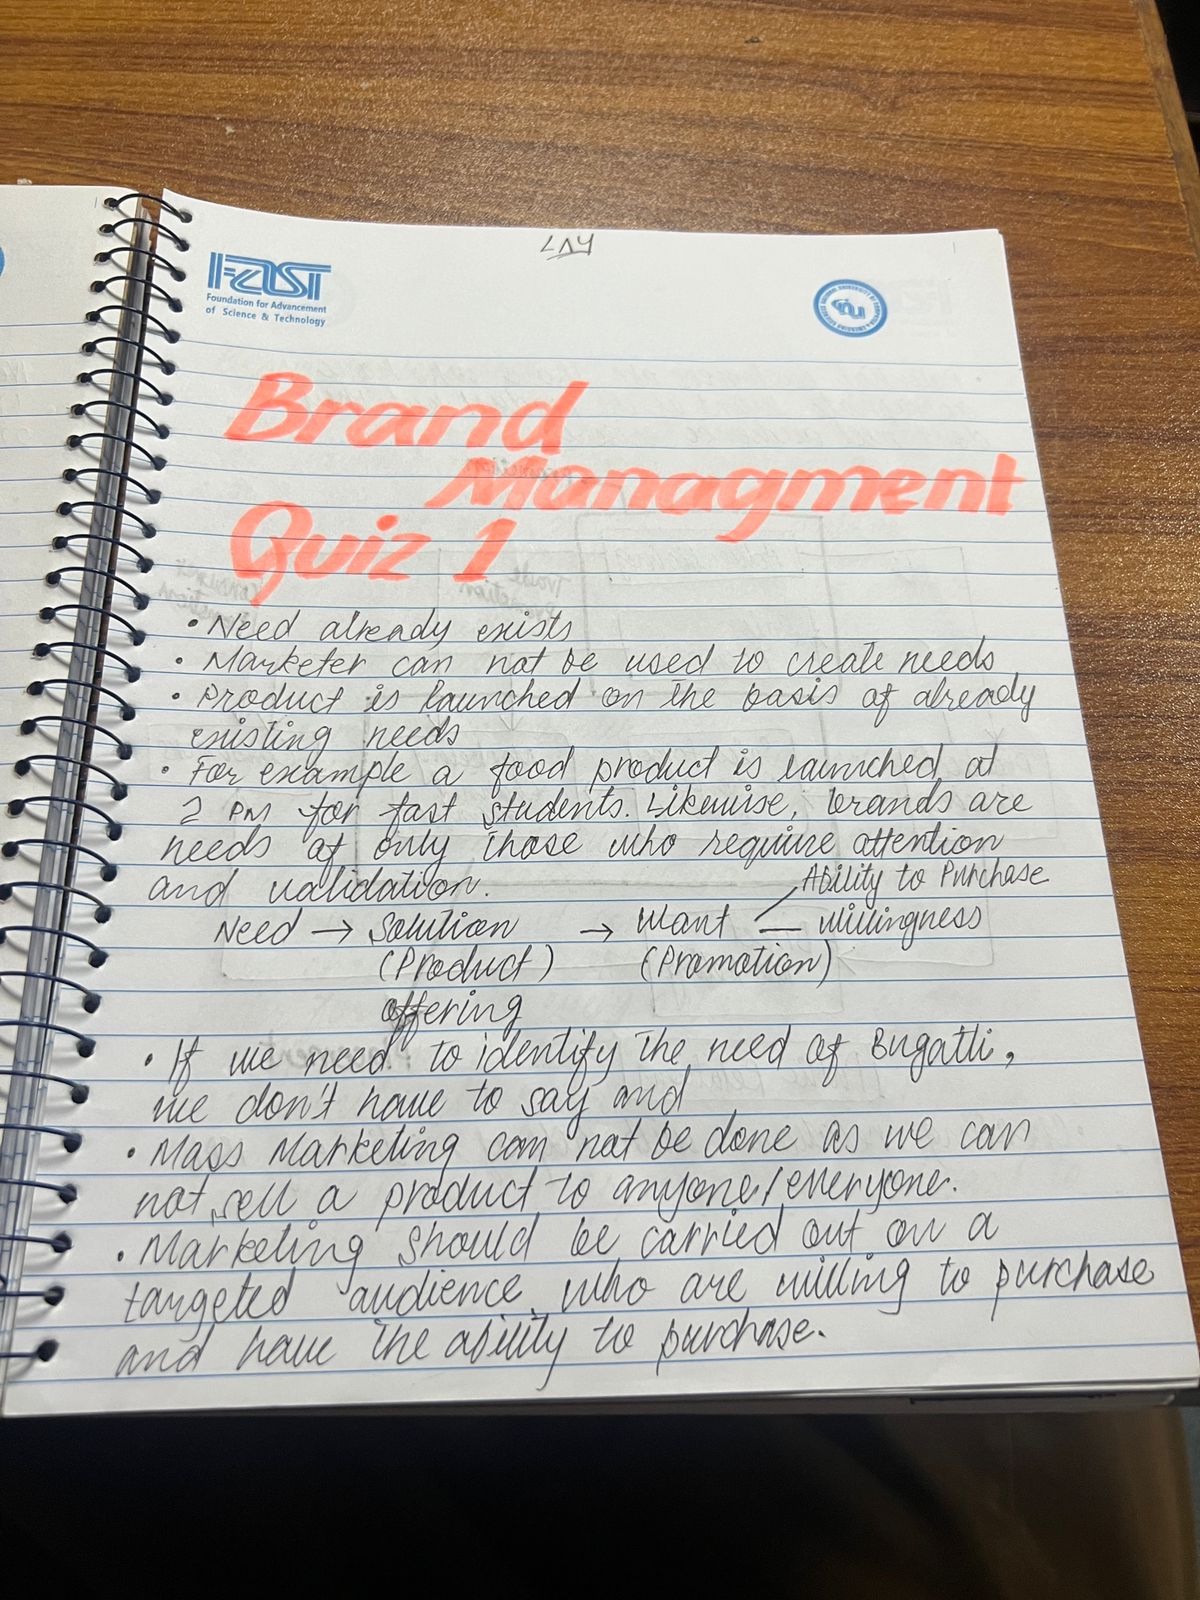 FAST
Foundation for Advancement
of Science & Technology
Brand
Managment
Quiz 1
• Need already exists
• Marketer can not be used to create needs
• Product is launched on the basis of already
existing needs
• For example a food product is launched at
2 PM for fast students. Likewise, brands are
needs of only those who require attention
and validation.
Need → Solution → Want — Ability to Purchase
— willingness
(Product) (Promotion)
offering
• If we need to identify the need of Bugatti,
we don't have to say and
• Mass Marketing can not be done as we can
not sell a product to anyone/everyone.
• Marketing should be carried out on a
targeted audience who are willing to purchase
and have the ability to purchase.